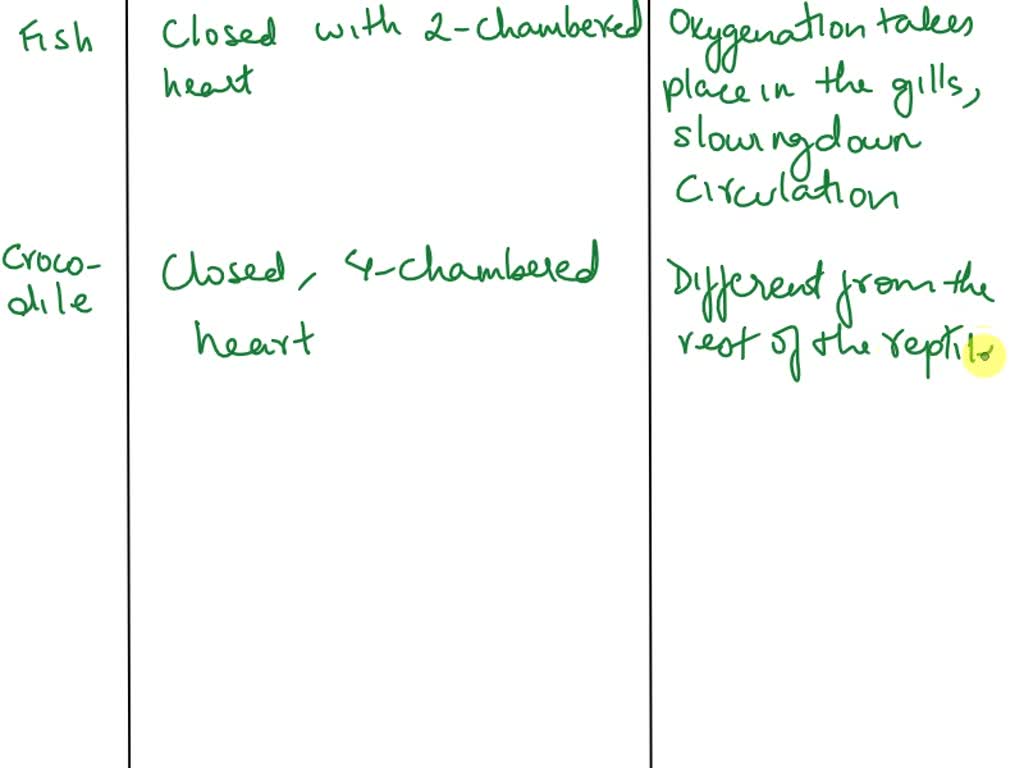 Fish
Closed with 2-chambered
heart
Oxygenation takes
place in the gills,
slowing down
circulation
Croco-
dile
Closed, 4-chambered
heart
Different from the
rest of the reptil